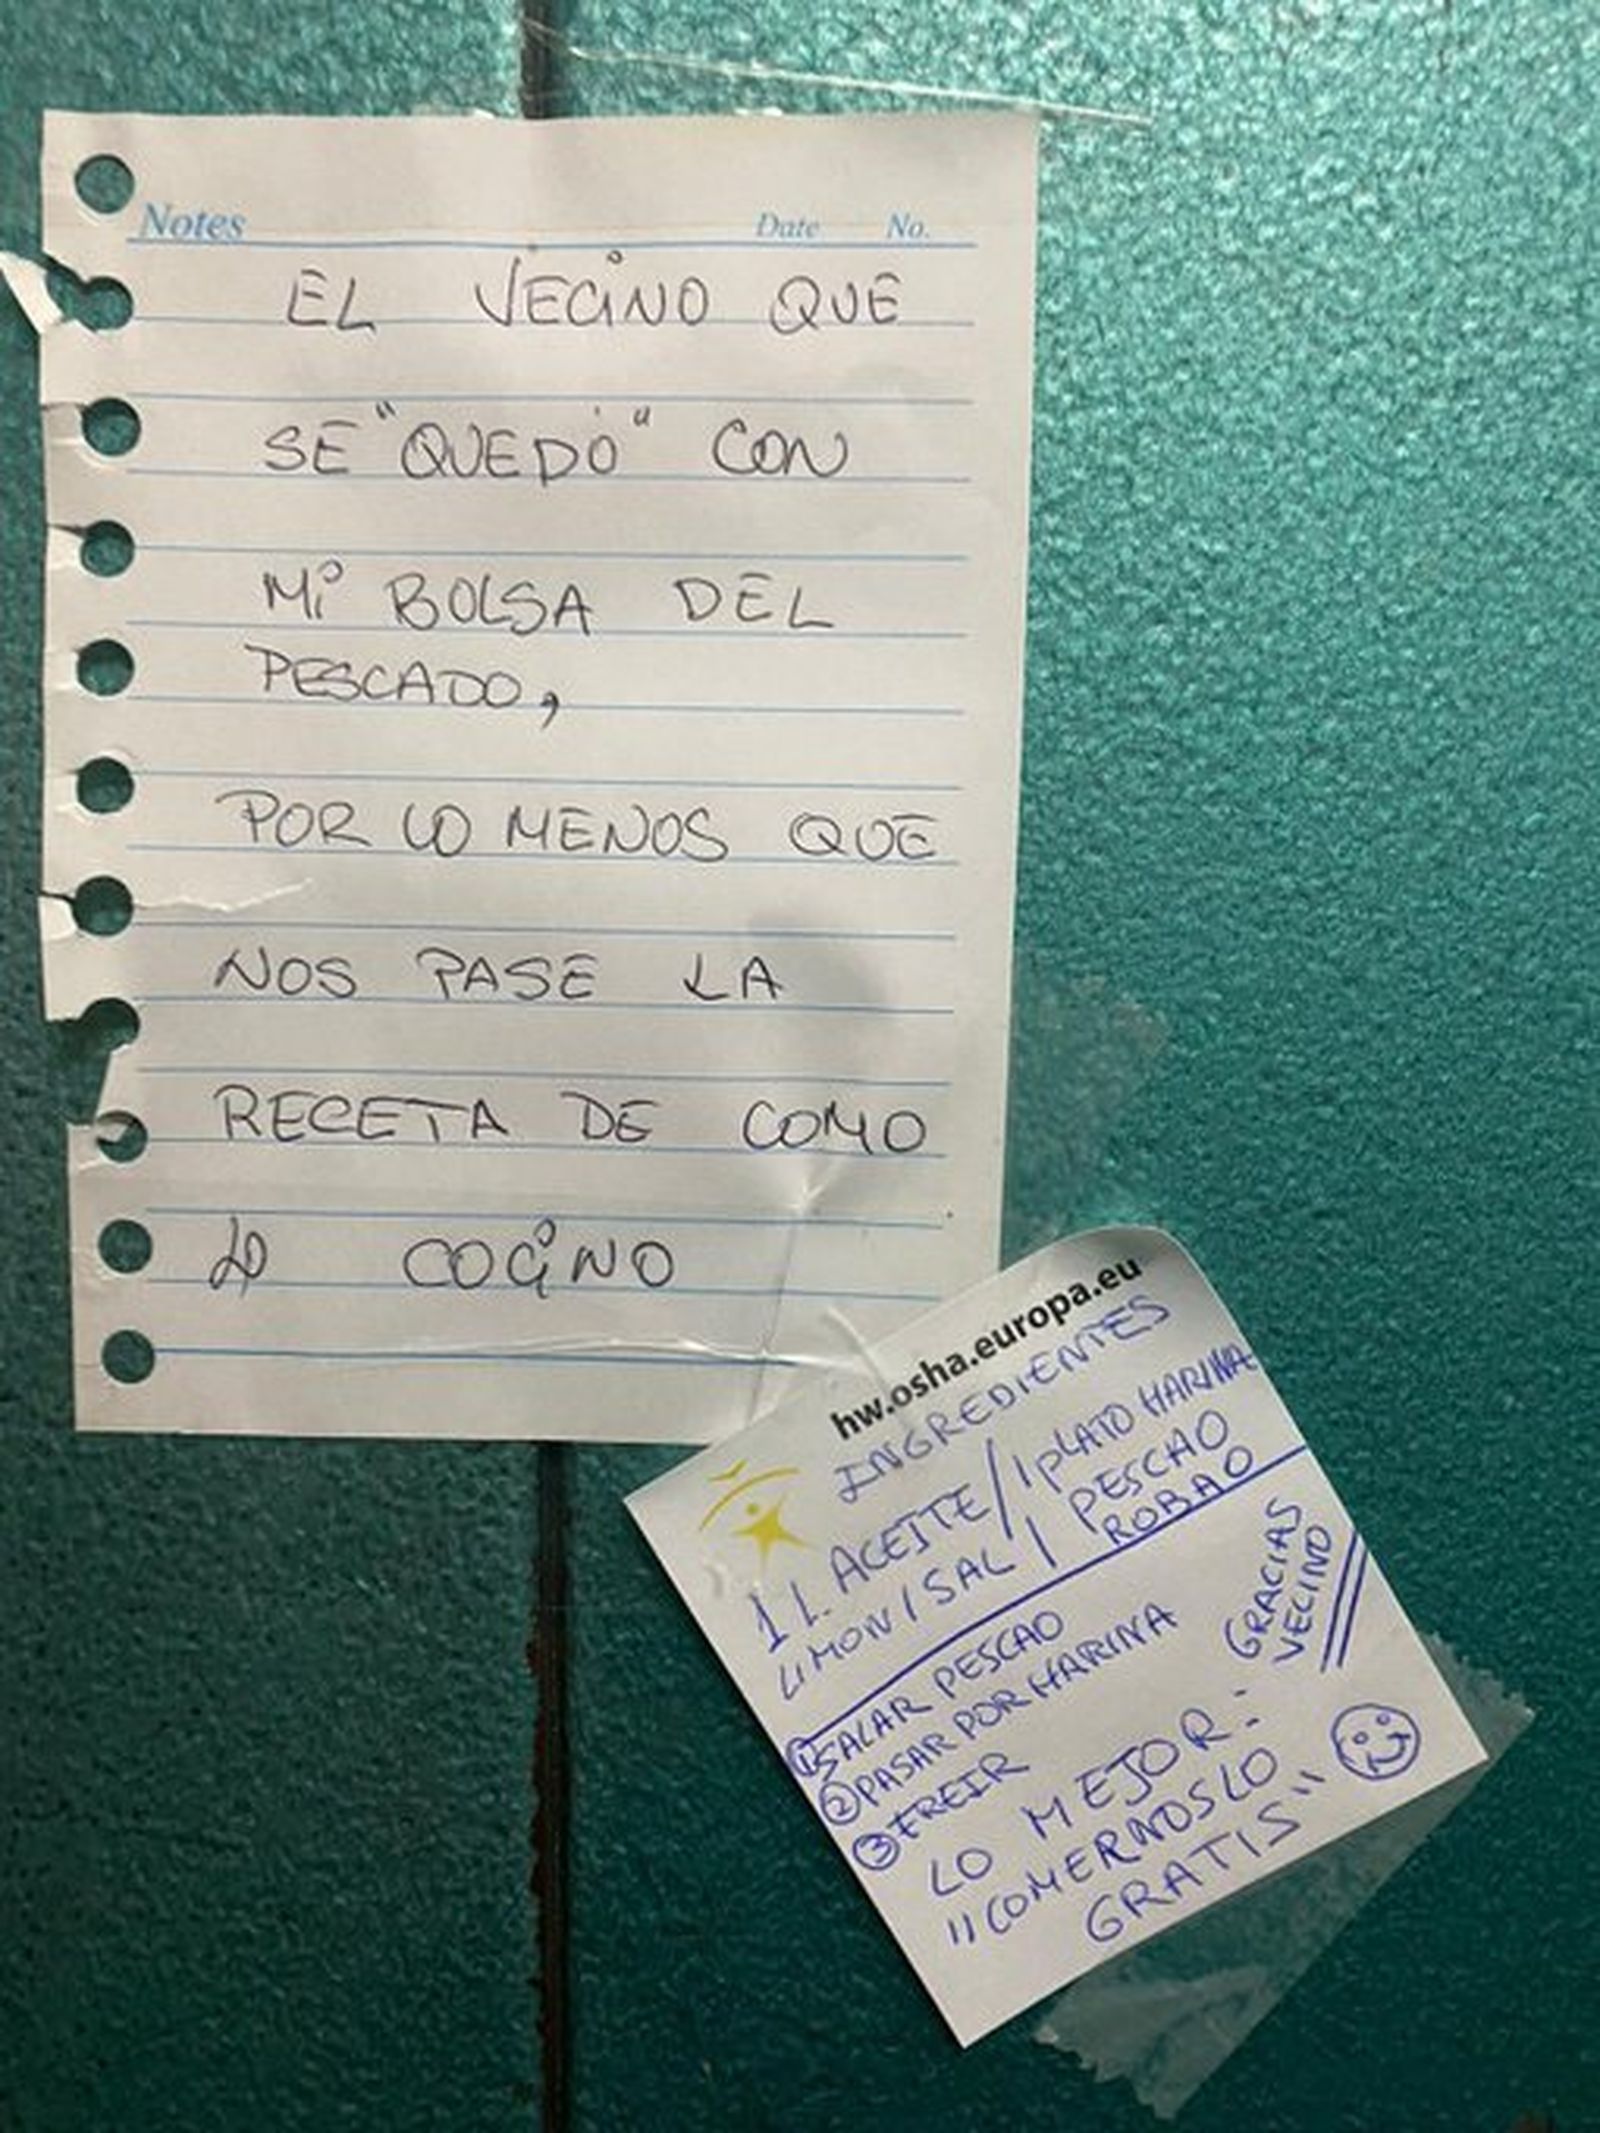 Notes Date No.
EL VECINO QUE
SE "QUEDÓ" CON
Mi BOLSA DEL
PESCADO,
POR LO MENOS QUE
NOS PASE LA
RECETA DE COMO
LO COCINO
hw.osha.europa.eu
INGREDIENTES
1 L. ACEITE/1 PLATO HARINA
LIMON/SAL/PESCAO
ROBAO
① SALAR PESCAO
② PASAR POR HARINA
③ FREIR
GRACIAS
VECINO
LO MEJOR:
"COMERNOSLO
GRATIS"